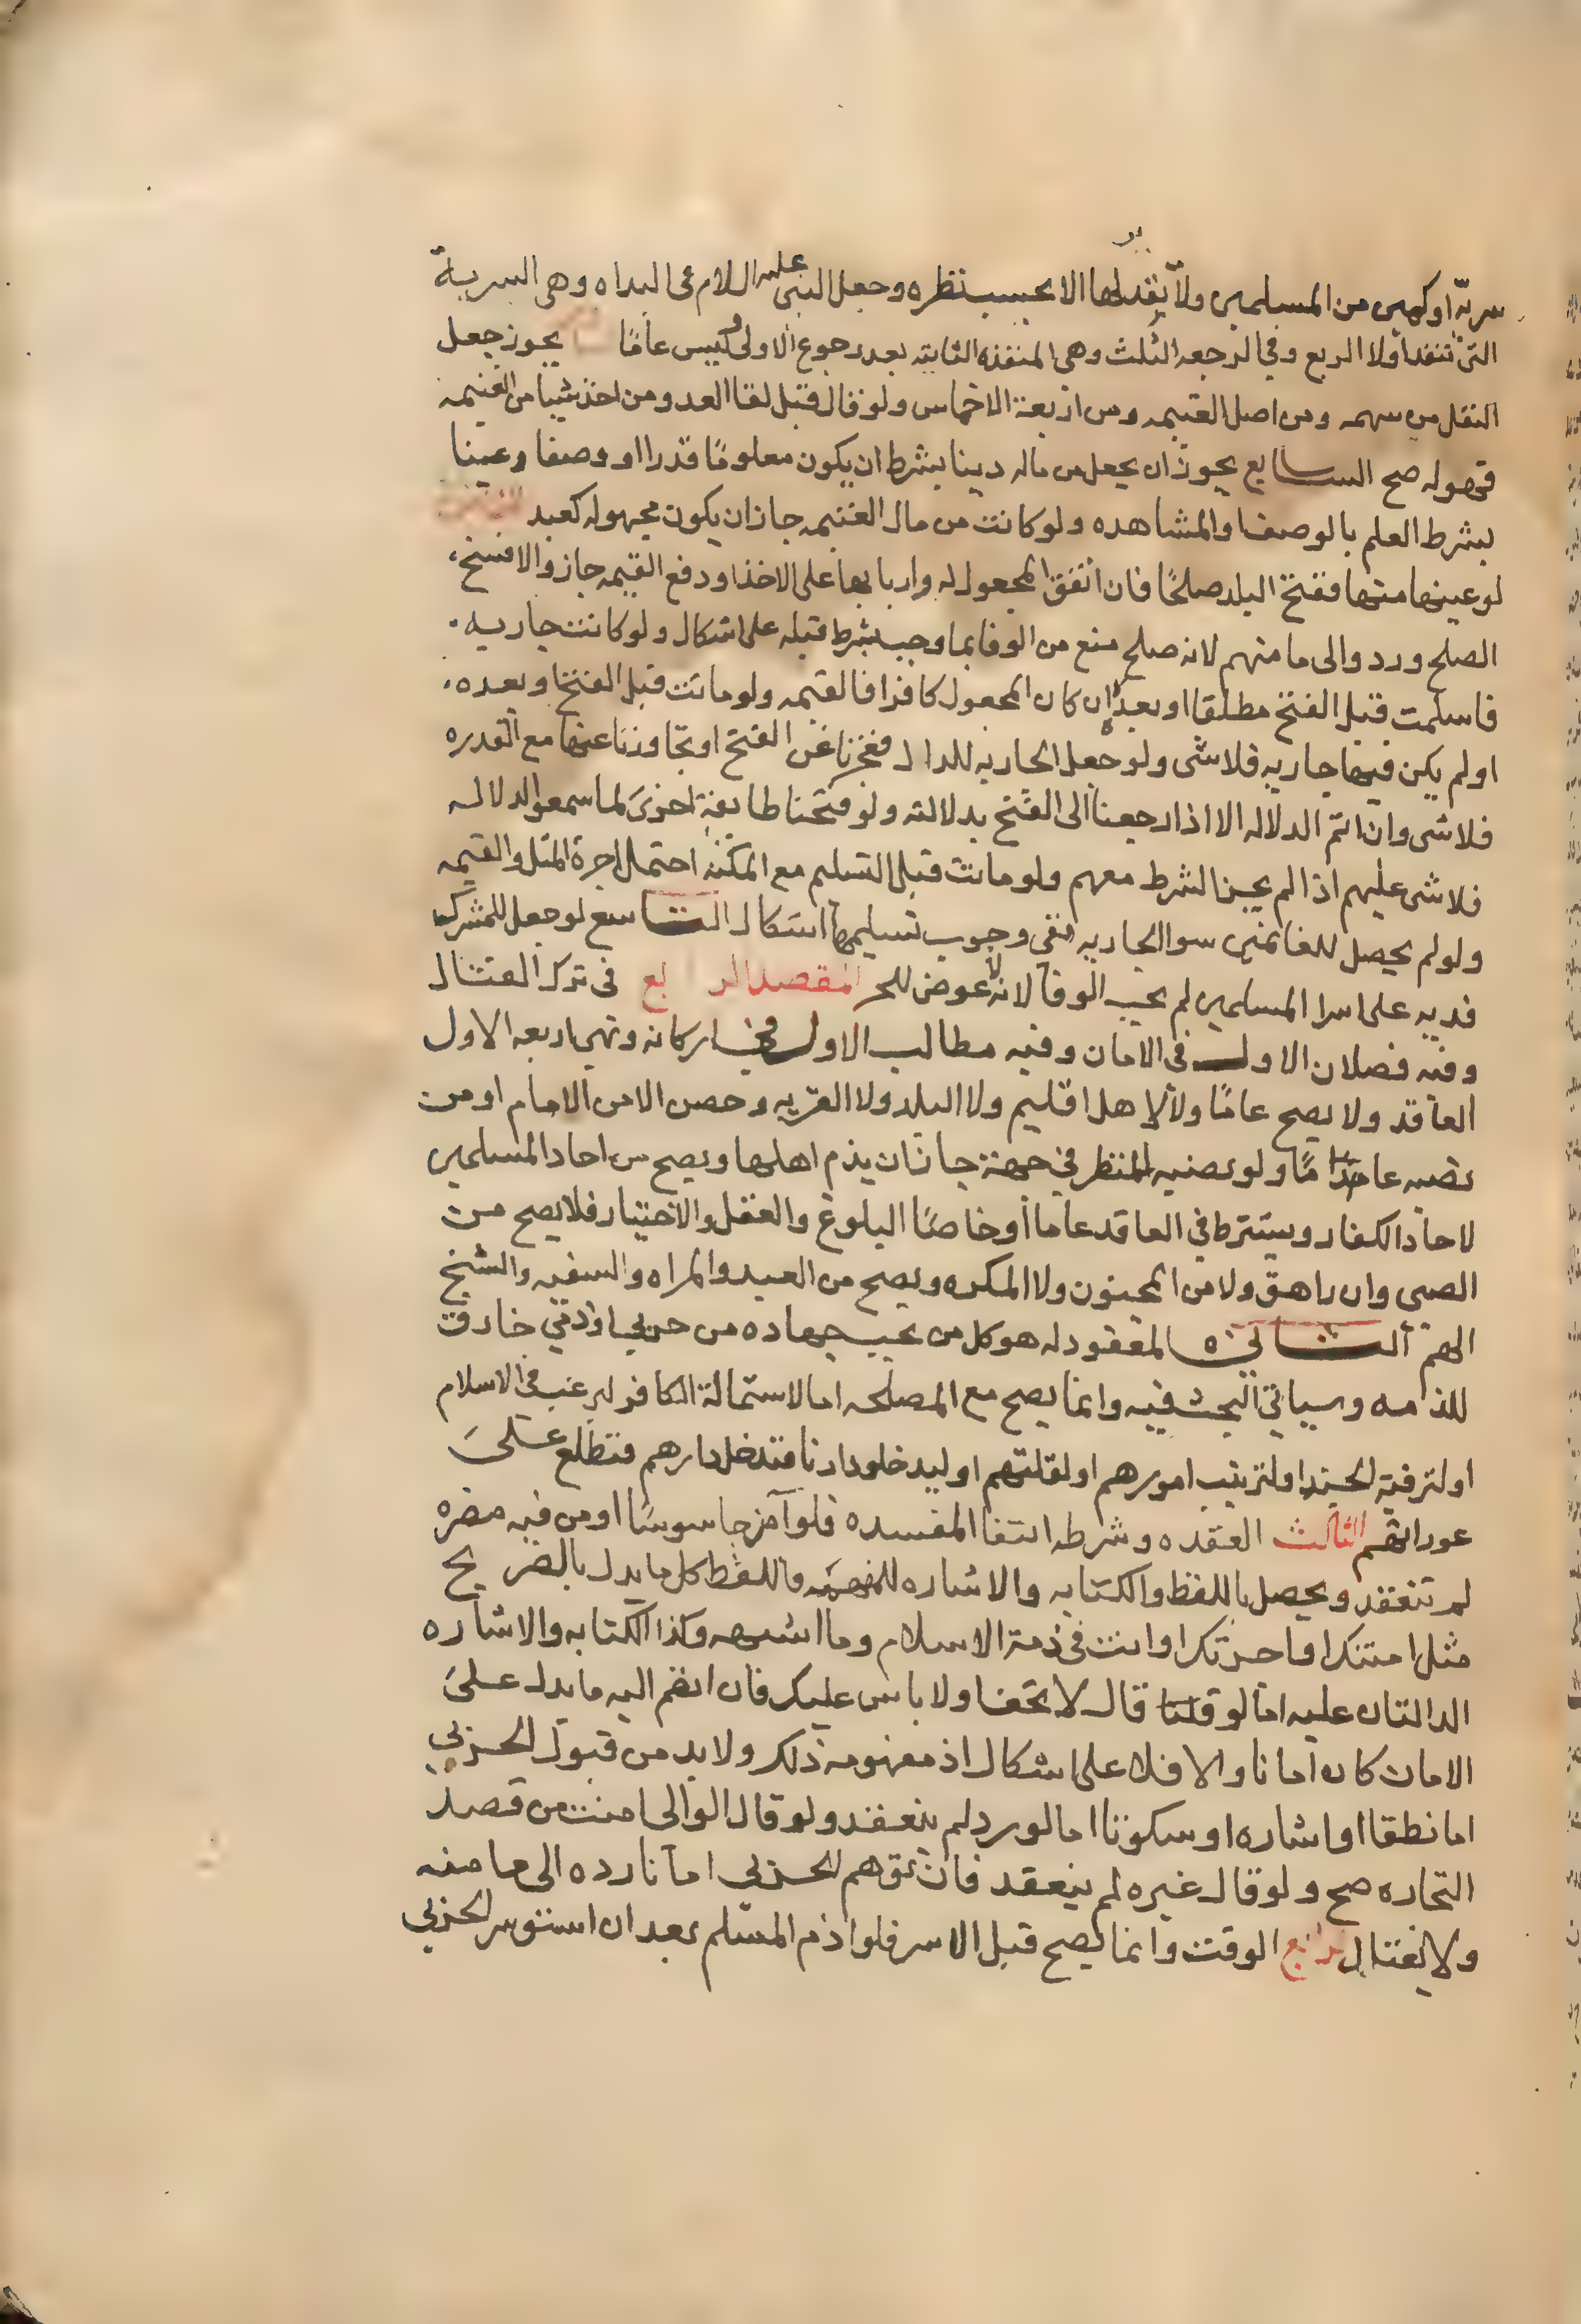 سريّة او كمين من المسلمين ولا تقدير لها الا بحسب نظره وجعل النبى عليه السلام فى البداه وهى السرية
التى تنفذ اولا الربع وفى الرجعه الثلث وهى المنفذه الثانيه بعد رجوع الاولى وليس عامًا يجوز جعل
النفل من سهمه ومن اصل الغنيمه ومن اربعة الاخماس ولو قال قبل لقا العدو من اخذ شيا من الغنيمه
فهو له صح السابع يجوز ان يجعل من ماله دينا بشرط ان يكون معلومًا قدرا او وصفا وعينا
بشرط العلم بالوصف او المشاهده ولو كانت من مال الغنيمه جاز ان يكون مجهوله كعبد الثامن
لو عينها منها ففتح البلد صلحًا فان اتفق المجعول له واربابها على الاخذ او دفع القيمه جاز والا فسخ
الصلح وردوا الى مامنهم لانه صلح منع من الوفا بما وجب بشرط قبله على اشكال ولو كانت جاريه
فاسلمت قبل الفتح مطلقا او بعده ان كان المجعول كافرا فالقيمه ولو ماتت قبل الفتح او بعده
او لم يكن فيها جاريه فلا شى ولو جعل الجاريه للدال فعجزنا عن الفتح او تجاوزنا عنها مع القدره
فلا شى وان اتم الدلاله الا اذا رجعنا الى الفتح بدلالته ولو فتحنا طايفة اخرى لما سمعوا الدلاله
فلا شى عليهم اذا لم يجز الشرط معهم ولو ماتت قبل التسليم مع المكنه احتمل اجرة المثل والقيمه
ولو لم يحصل للغانمين سوا الجاريه ففى وجوب تسليمها اشكال التاسع لو جعل للمشرك
فديه على اسرا المسلمين لم يجب الوفا لانه لا عوض للحر المقصد الرابع فى ترك القتال
وفيه فصلان الاول فى الامان وفيه مطالب الاول فى اركانه وهى اربعه الاول
العاقد ولا يصح عامًا ولا لاهل اقليم ولا البلد ولا القريه وحصن الا من الامام او من
نصبه عامًا ولو نصبه للنظر فى جهة جاز ان يذم اهلها ويصح من احاد المسلمين
لاحاد الكفار ويشترط فى العاقد عاما او خاصًا البلوغ والعقل والاختيار فلا يصح من
الصبى وان راهق ولا من المجنون ولا المكره ويصح من العبد والمراه والسفيه والشيخ
الهم الثانى المعقود له هو كل من يجب جهاده من حربى او ذمى خارق
للذمه وسياتى البحث فيه وانما يصح مع المصلحه اما لاستمالة الكافر ليرغب فى الاسلام
او لترفية الجند او لترتيب امورهم او لقلتهم او ليدخلو دارنا فندخل دارهم فنطلع على
عوراتهم الثالث العقده وشرطه انتفا المفسده فلو آمن جاسوسًا او من فيه مضره
لم تنعقد ويحصل باللفظ والكتابه والاشاره المفهمه فاللفظ كل ما يدل بالصريح
مثل امنتك او اجرتك او انت فى ذمة الاسلام وما اشبهه وكذا الكتابه والاشاره
الدالتان عليه اما لو قال لا تخف او لا باس عليك فان انضم اليه ما يدل على
الامان كان امانا والا فلا على اشكال اذ مفهومه ذلك ولا بد من قبول الحربى
اما نطقا او اشاره او سكوتا اما لو رد لم ينعقد ولو قال الوالى امنت من قصد
التجاره صح ولو قال غيره لم ينعقد فان توهم الحربى امانا رده الى مامنه
ولا يغتال الرابع الوقت وانما يصح قبل الاسر فلو اذم المسلم بعد ان استوسر الحربى